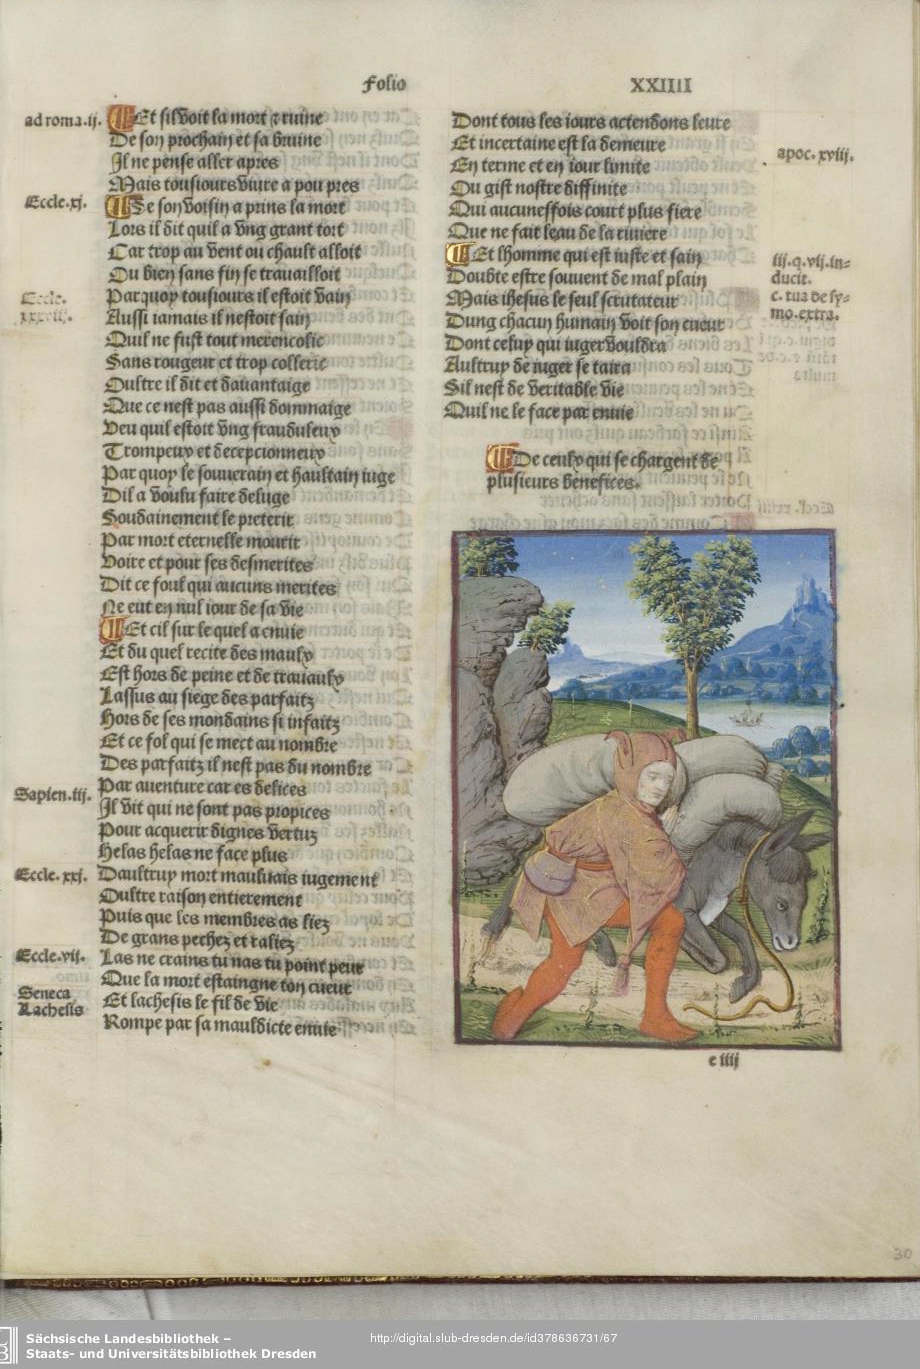 Folio XXIIII
ad roma.ij.
Et sil voit la mort & ruine
De son prochain et sa bruine
Il ne pense aller apres
Mais tousiours viure a pou pres
Eccle.xj.
Se son voisin a prins la mort
Lors il dit quil a vng grant tort
Car trop au vent ou chault alloit
Ou bien sans fin se trauailloit
Eccle.
xxxvij.
Par quoy tousiours il estoit vain
Aussi iamais il nestoit sain
Quil ne fust tout merencolic
Sans rougeur et trop colleric
Oultre il dit et dauantaige
Que ce nest pas aussi dommaige
Veu quil estoit vng frauduleux
Trompeux et decepcionneux
Par quoy le souuerain et haultain iuge
Dil a voulu faire deluge
Soudainement le preterir
Par mort eternelle mourir
Voire et pour ses desmerites
Dit ce foul qui aucuns merites
Ne eut en nul iour de sa vie
Et cil sur le quel a enuie
Et du quel recite des maulx
Est hors de peine et de trauaulx
Lassus au siege des parfaitz
Hors de ses mondains si infaitz
Et ce fol qui se mect au nombre
Des parfaitz il nest pas du nombre
Sapien.iij.
Par auenture car es delices
Il vit qui ne sont pas propices
Pour acquerir dignes vertuz
Helas helas ne face plus
Eccle.xxj.
Daultruy mort maluais iugement
Oultre raison entierement
Puis que les membres as liez
De grans pechez et raliez
Eccle.vij.
Las ne crains tu nas tu point peur
Que la mort estaingne ton cueur
Seneca
Lachesis
Et lachesis le fil de vie
Rompe par sa mauldicte enuie
Dont tous les iours actendons leure
Et incertaine est la demeure
apoc.xviij.
En terme et en iour limite
Ou gist nostre diffinite
Qui aucuneffois court plus fiere
Que ne fait leau de la riuiere
Et lhomme qui est iuste et sain
iij.q.vij.in-
ducit.
c. tua de sy-
mo.extra.
Doubte estre souuent de mal plain
Mais ihesus le seul scrutateur
Dung chacun humain voit son cueur
Dont celuy qui iuger vouldra
Aultruy de iuger se taira
Sil nest de veritable vie
Quil ne le face par enuie
De ceulx qui se chargent de
plusieurs benefices.
e iiij
30
Sächsische Landesbibliothek –
Staats- und Universitätsbibliothek Dresden
http://digital.slub-dresden.de/id378636731/67